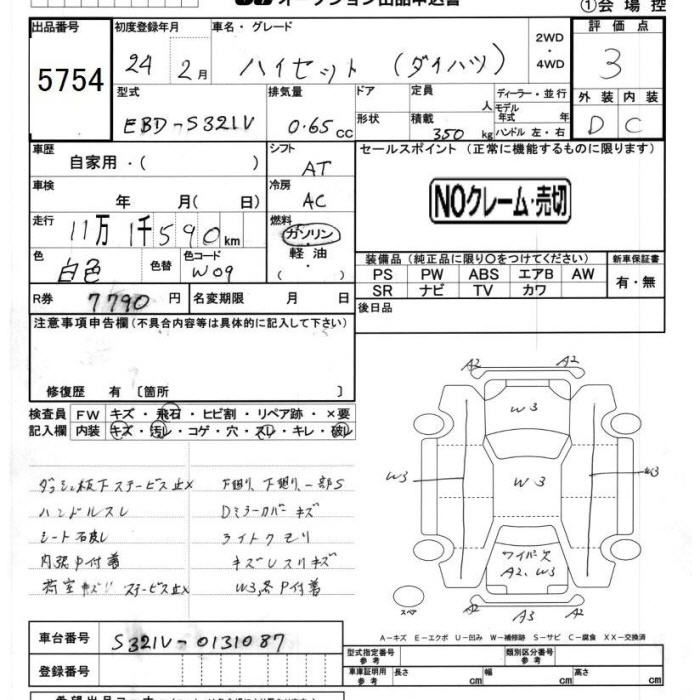 オークション出品申込書
①会場控
出品番号
5754
初度登録年月
24 2月
車名・グレード
ハイゼット (ダイハツ)
2WD
・
4WD
評価点
3
外装 内装
D C
型式
EBD-S321V
排気量
0.65 cc
ドア
形状
定員
人
積載
350 kg
ディーラー・並行
モデル年式 年
ハンドル 左・右
車歴
自家用・( )
シフト
AT
車検
年 月( 日)
冷房
AC
走行
11万1千590km
燃料
ガソリン
・
軽油
・
( )
色
白色
色替
カラーコード
W09
R券 7790円
名変期限 月 日
セールスポイント (正常に機能するものに限ります)
NOクレーム・売切
装備品 (純正品に限り○をつけてください)
PS PW ABS エアB AW
SR ナビ TV カワ
新車保証書
有・無
後日品
注意事項申告欄 (不具合内容等は具体的に記入して下さい)
修復歴 有 〔箇所 〕
検査員 FW キズ・飛石・ヒビ割・リペア跡・×要
記入欄 内装 キズ・汚レ・コゲ・穴・スレ・キレ・破レ
ハンドルスレ
内張P付着
下廻リ、下廻リ、一部S
Dミラーカバーキズ
ライトクモリ
W3、各P付着
A2 A2
W3
W3 W3 W3
ワイパー欠
A2、W3
A2 A3 A2
スペア
A−キズ E−エクボ U−凹み W−補修跡 S−サビ C−腐食 XX−交換済
車台番号 S321V-0131087
登録番号
型式指定番号
参考
類別区分番号
参考
車庫証明用
参考
長さ cm 幅 cm 高さ cm